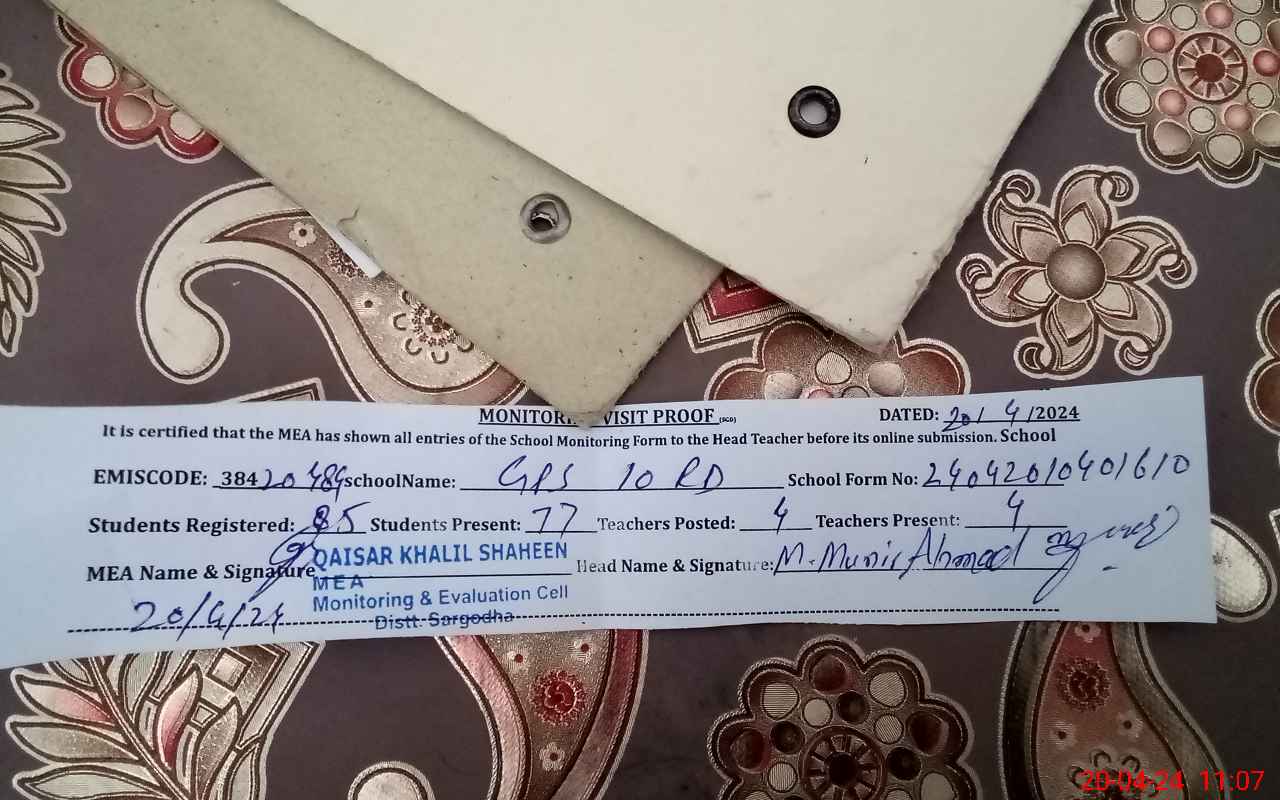 MONITORING VISIT PROOF (SGD) DATED: 20/4/2024
It is certified that the MEA has shown all entries of the School Monitoring Form to the Head Teacher before its online submission. School
EMISCODE: 38420484 schoolName: GPS 10 RD School Form No: 2404201040161 0
Students Registered: 85 Students Present: 77 Teachers Posted: 4 Teachers Present: 4
MEA Name & Signature QAISAR KHALIL SHAHEEN Head Name & Signature: M. Munir Ahmad
MEA
Monitoring & Evaluation Cell
Distt. Sargodha
20/4/24
20-04-24 11:07